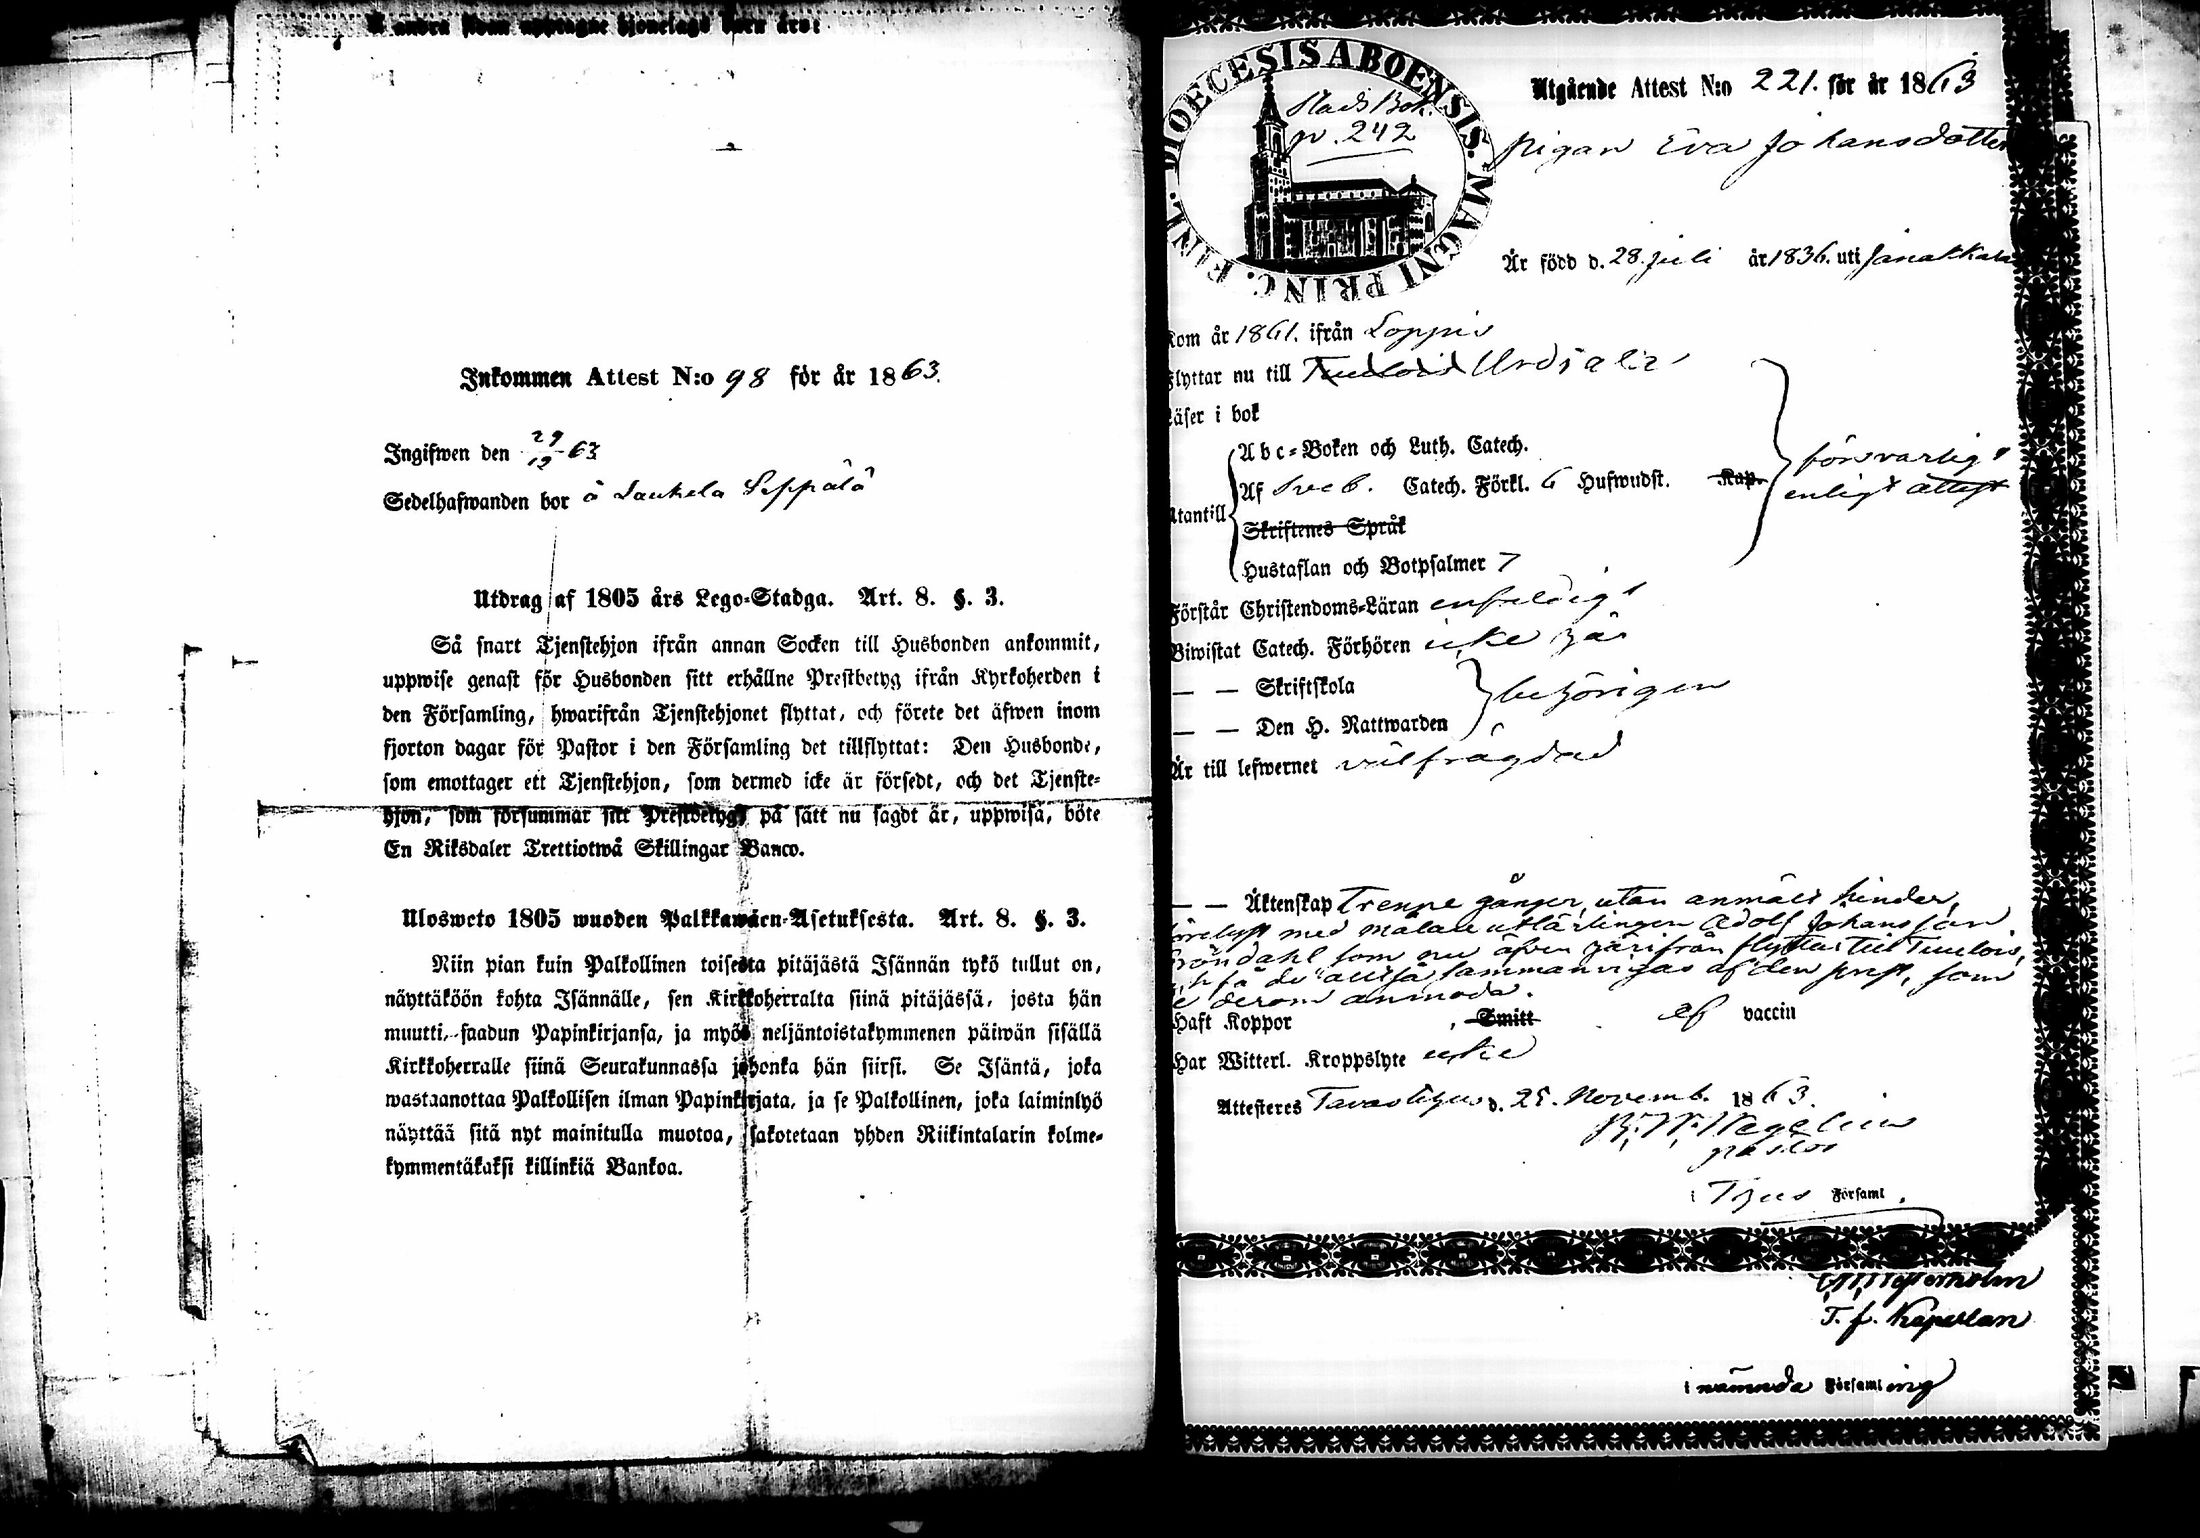 Å andra
Inkommen Attest N:o 98 för år 1863.
Ingifwen den 29/12 63
Sedelhafwanden bor å Laukela Seppälä
Utdrag af 1805 års Lego-Stadga. Art. 8. §. 3.
Så snart Tjenstehjon ifrån annan Socken till Husbonden ankommit,
uppwise genast för Husbonden sitt erhållne Prestbetyg ifrån Kyrkoherden i
den Församling, hwarifrån Tjenstehjonet flyttat, och förete det äfwen inom
fjorton dagar för Pastor i den Församling det tillflyttat: Den Husbonde,
som emottager ett Tjenstehjon, som dermed icke är försedt, och det Tjenste-
hjon, som försummar sitt Prestbetyg på sätt nu sagdt är, uppwisa, böte
En Riksdaler Trettiotwå Skillingar Banco.
Ulosweto 1805 wuoden Palkkawäen-Asetuksesta. Art. 8. §. 3.
Niin pian kuin Palkollinen toisesta pitäjästä Isännän tykö tullut on,
näyttäköön kohta Isännälle, sen Kirkkoherralta siinä pitäjässä, josta hän
muutti, saadun Papinkirjansa, ja myös neljäntoistakymmenen päiwän sisällä
Kirkkoherralle siinä Seurakunnassa johonka hän siirsi. Se Isäntä, joka
wastaanottaa Palkollisen ilman Papinkirjata, ja se Palkollinen, joka laiminlyö
näyttää sitä nyt mainitulla muotoa, sakotetaan yhden Riikintalarin kolme-
kymmentäkaksi killinkiä Bankoa.
DIOECESIS ABOENSIS. MAGNI PRINC. FINL.
Stads Bok.
p. 242
Utgående Attest N:o 221. för år 1863
pigan Eva Johansdotter
Är född d. 28. juli år 1836. uti Janakkala
Kom år 1861. ifrån Loppis
Flyttar nu till Tuulois Urdiala
Läser i bok
Abc-Boken och Luth. Catech.
Af Sveb. Catech. Förkl. 6 Hufwudst. Kap.
Utantill
Skriftenes Språk
Hustaflan och Botpsalmer 7
försvarligt
enligt attest
Förstår Christendoms-Läran enfaldigt
Biwistat Catech. Förhören icke här
— — Skriftskola
— — Den H. Nattwarden
behörigen
Är till lefwernet välfrägdad
— — Äktenskap Trenne gånger, utan anmäldt hinder,
med målare utlärlingen Adolf Johansson
Gröndahl som nu äfven härifrån flyttar till Tuulois,
få de alltså sammanvigas af den prest, som
de derom anmoda.
Haft Koppor , Smitt af vaccin
Har Witterl. Kroppslyte icke
Attesteres Tavastehus d. 25. Novemb. 1863.
Hegelius
pastor
i T:hus Församl.
T. f. Kapellan
i nämnda Församling